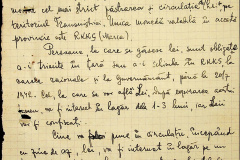 cel mai strict păstrarea și circulația "Lei" pe
teritoriul Transnistriei. Unica monedă valabilă în acesta
provincie este R.K.K.S. (Marca).
Persoana la care se găsesc lei, sunt obligate
a-i trimite în țară sau a-i schimba în R.K.K.S. la
băncile naționale și la guvernământ, până la 20/7
1942. Cei la care se vor afla lei, după expirarea acestui
termen, vor fi internați în lagăr dela 1-3 luni, iar leii
vor fi confiscați.
Cine va pune în circulație începând
cu ziua de azi, lei, va fi internat în lagăr pe un